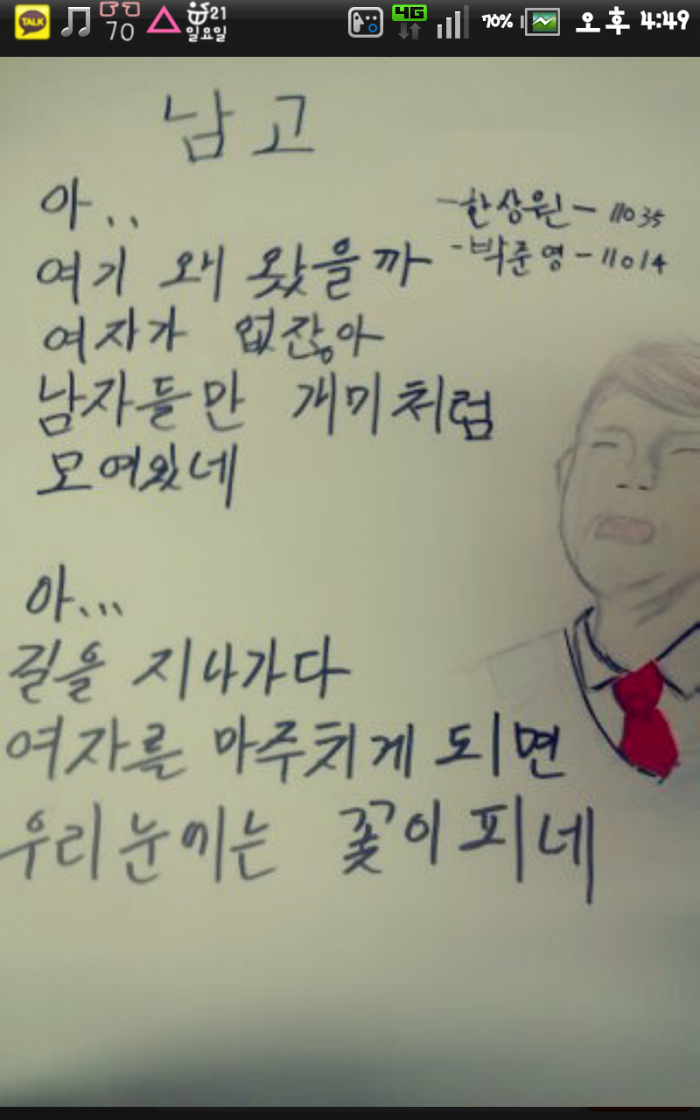 TALK
70
21
일요일
4G
70%
오후 4:49
남고
-한상원-11035
-박준영-11014
아..
여기 왜 왔을까
여자가 없잖아
남자들만 개미처럼
모여있네
아...
길을 지나가다
여자를 마주치게 되면
우리눈에는 꽃이피네